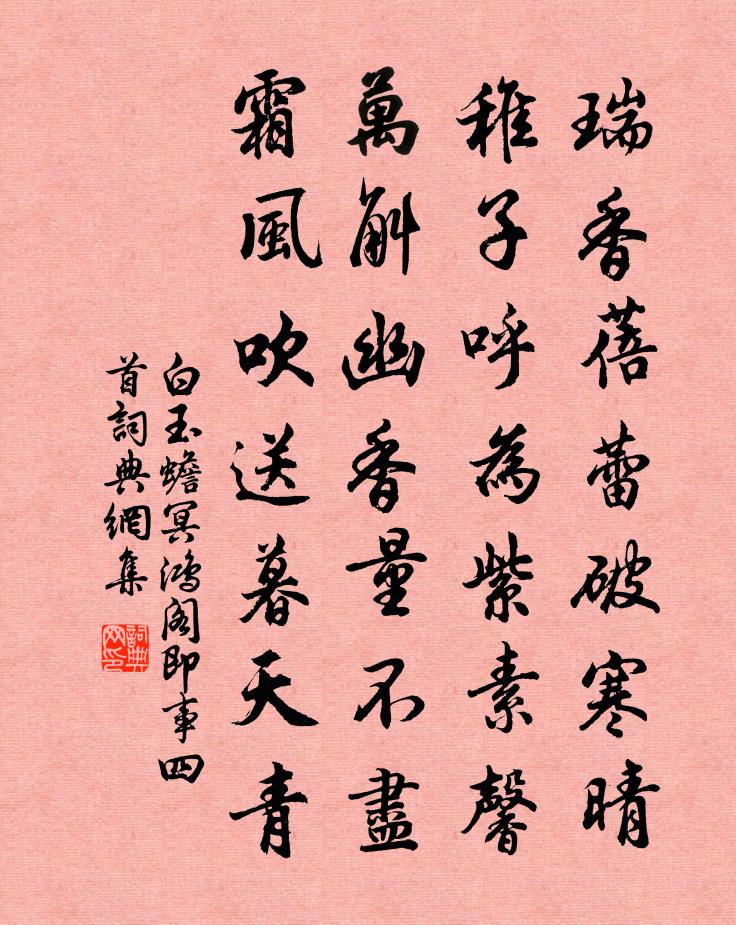 瑞香蓓蕾破寒晴
稚子呼為紫素馨
萬斛幽香量不盡
霜風吹送暮天青
白玉蟾冥鴻閣即事四
首詞典網集
詞典
网印